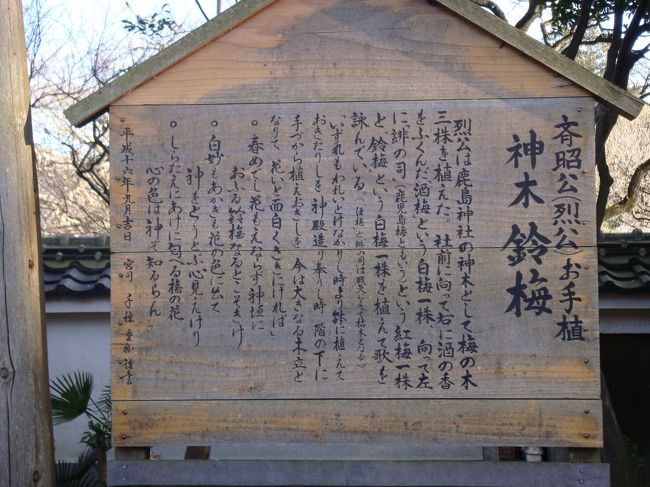 斉昭公(烈公)お手植
神木 鈴梅
烈公は鹿島神社の神木として梅の木
三株を植えた、社前に向って右に酒の香
をふくんだ酒梅という白梅一株 向って左
に「緋の司(鹿児島梅ともいう)という紅梅一株
と、鈴梅という白梅一株を植えて歌を
詠んでいる、
「いずれもわれいとけなかりし時より鉢に植えて
おきたりしを 神殿造り奉りし時 階の下に
手づから植えおきしを 今は大きなる木立と
なりて 花いと面白くさきにければ」
。春めでし花もえならず神垣に
おふる鈴梅なるとこそきけ
。白妙もあかきも花の色に出て
神をとうとぶ心見えけり
。しらたえにあけに匂へる梅の花
心の色は神ぞ知るらん
。平成十六年九月吉日 宮司